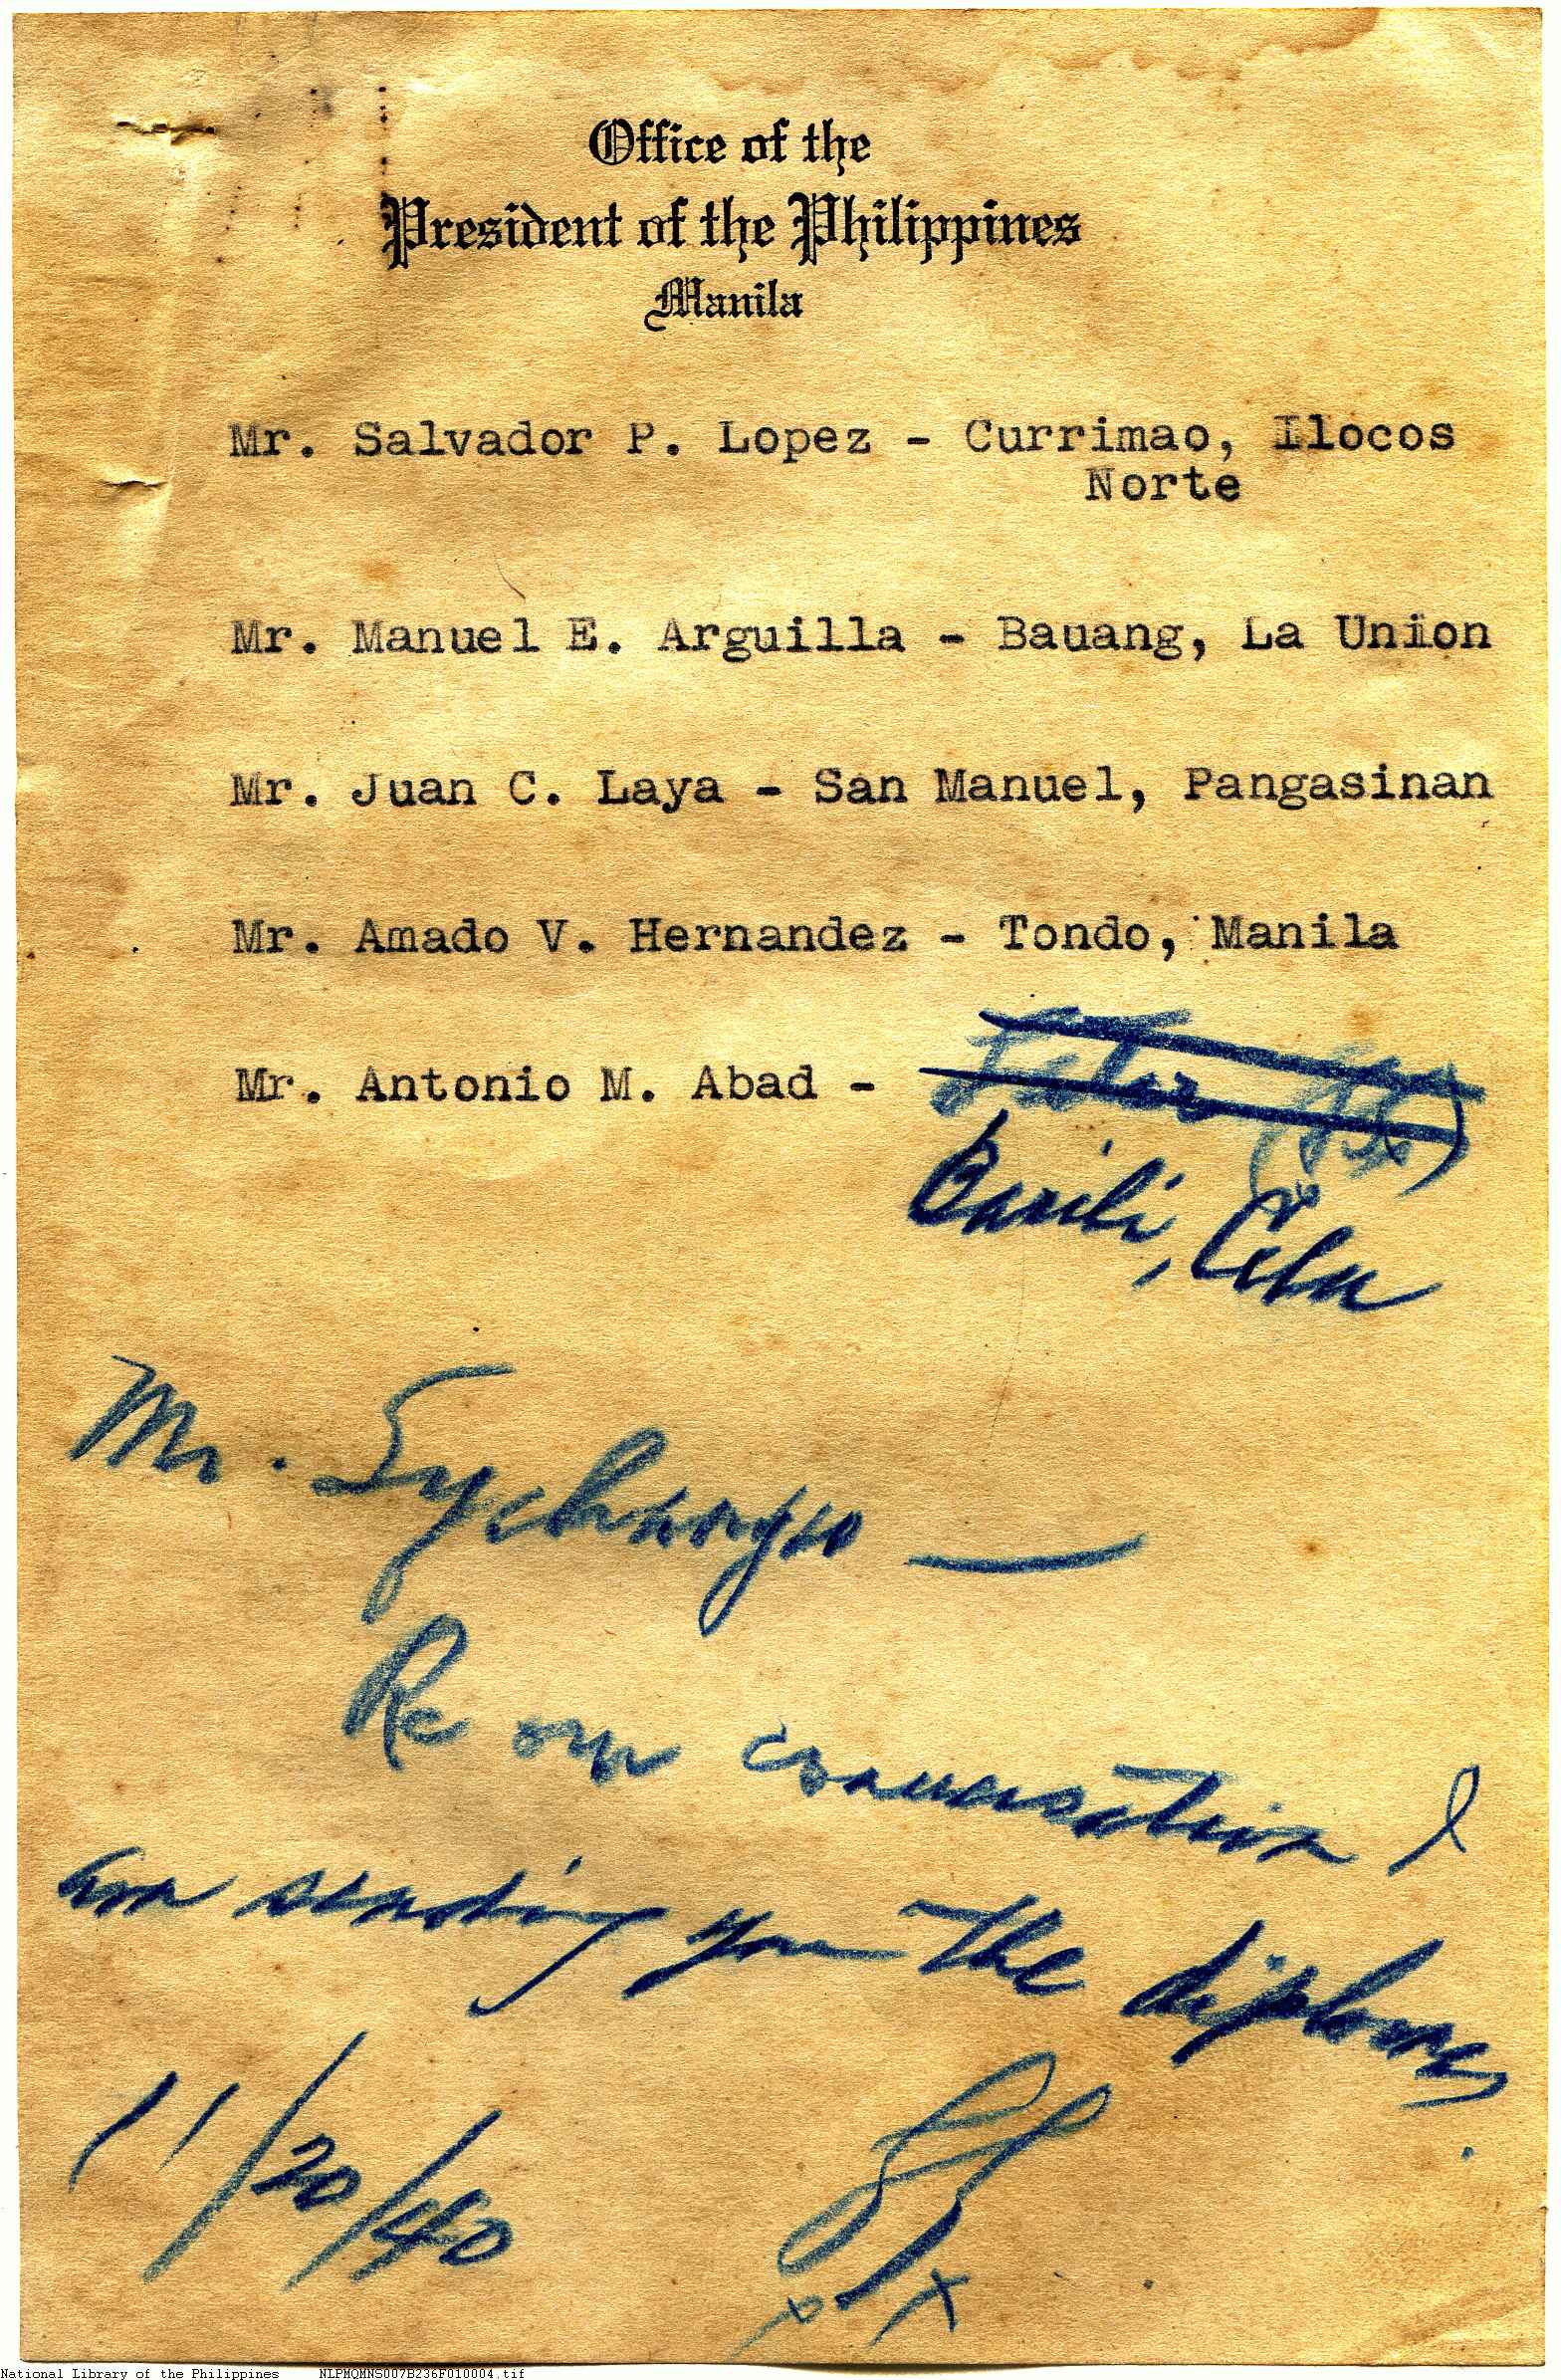 Office of the
President of the Philippines
Manila
Mr. Salvador P. Lopez - Currimao, Ilocos
Norte
Mr. Manuel E. Arguilla - Bauang, La Union
Mr. Juan C. Laya - San Manuel, Pangasinan
Mr. Amado V. Hernandez - Tondo, Manila
Mr. Antonio M. Abad -
Barili, Cebu
Mr. Sychangco —
Re our conversation I
am sending you the diplomas.
11/20/40
National Library of the Philippines NLPMQMNS007B236F010004.tif